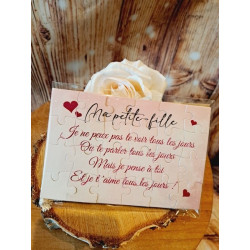 Ma petite-fille
Je ne peux pas te voir tous les jours
Ou te parler tous les jours
Mais je pense à toi
Et je t'aime tous les jours !